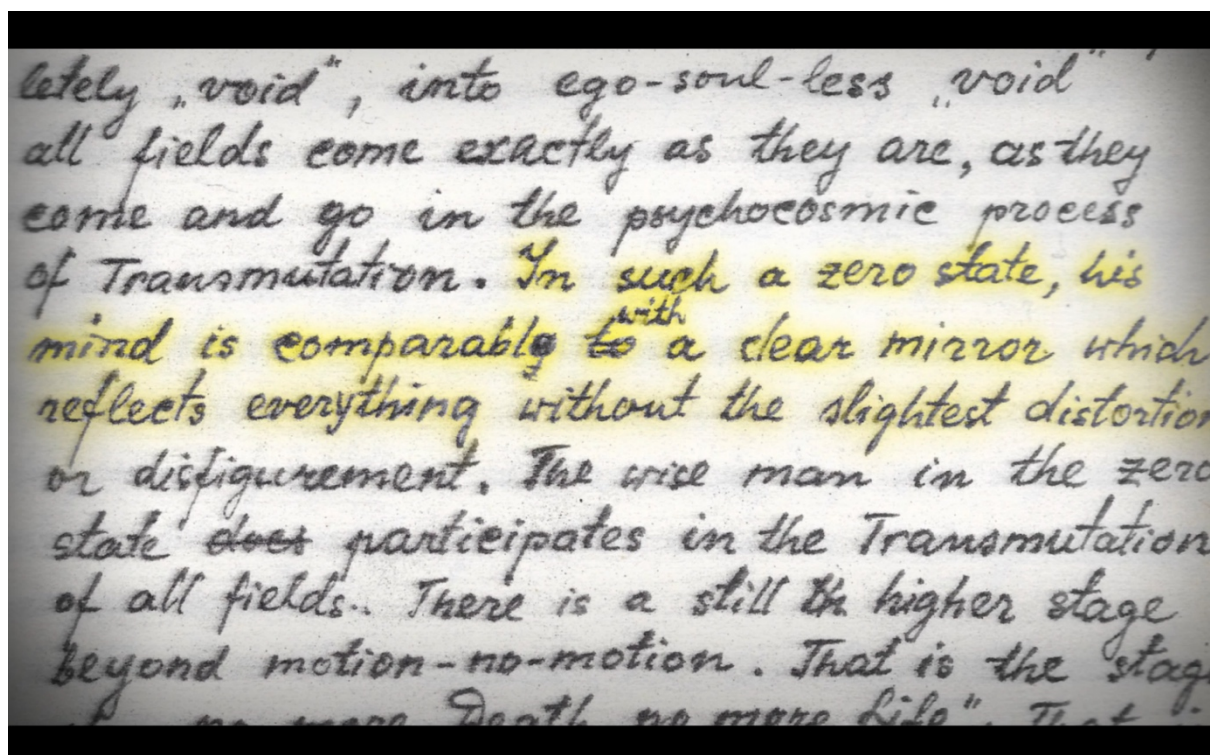 letely „void“, into ego-soul-less „void“
all fields come exactly as they are, as they
come and go in the psychocosmic process
of Transmutation. In such a zero state, his
with
mind is comparable to a clear mirror which
reflects everything without the slightest distortion
or disfigurement. The wise man in the zero
state does participates in the Transmutation
of all fields.. There is a still th higher stage
beyond motion-no-motion. That is the stag
no more Death no more Life". That